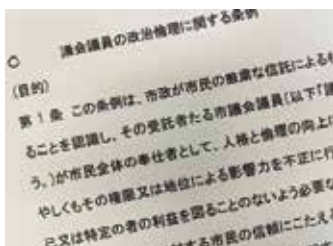 ○ 議会議員の政治倫理に関する条例
(目的)
第1条 この条例は、市政が市民の厳粛な信託によるも
ることを認識し、その受託者たる市議会議員(以下「議
う。)が市民全体の奉仕者として、人格と倫理の向上に
やしくもその権限又は地位による影響力を不正に行
己又は特定の者の利益を図ることのないよう必要な
する市民の信頼にこたえ